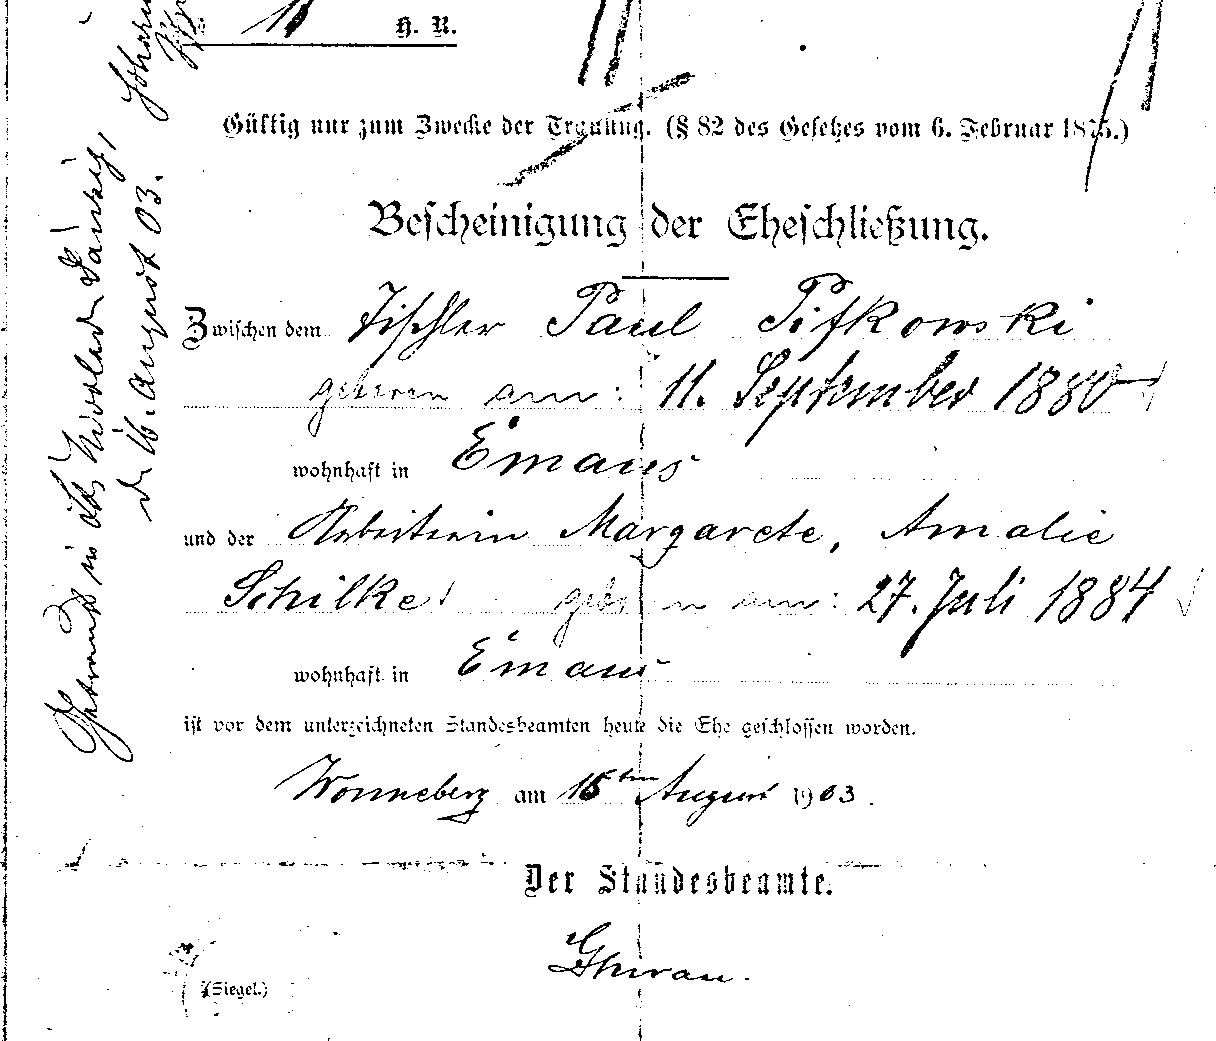 11 H. R.
Gültig nur zum Zwecke der Trauung. (§ 82 des Gesetzes vom 6. Februar 1875.)
Bescheinigung der Eheschließung.
Zwischen dem Tischler Paul Pifkowski
geboren am: 11. September 1880
wohnhaft in Emaus
und der Arbeiterin Margarete, Amalie
Schilke geboren am: 27. Juli 1884
wohnhaft in Emaus
ist vor dem unterzeichneten Standesbeamten heute die Ehe geschlossen worden.
Wonneberg am 15ten August 1903.
Der Standesbeamte.
(Siegel.)
Getraut in Danzig,
d. 16. August 03.